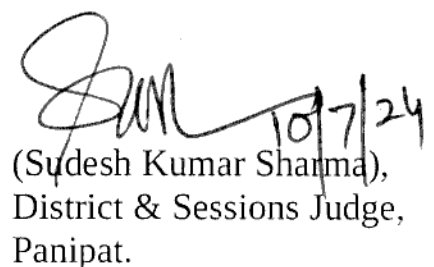 10/7/24
(Sudesh Kumar Sharma),
District & Sessions Judge,
Panipat.